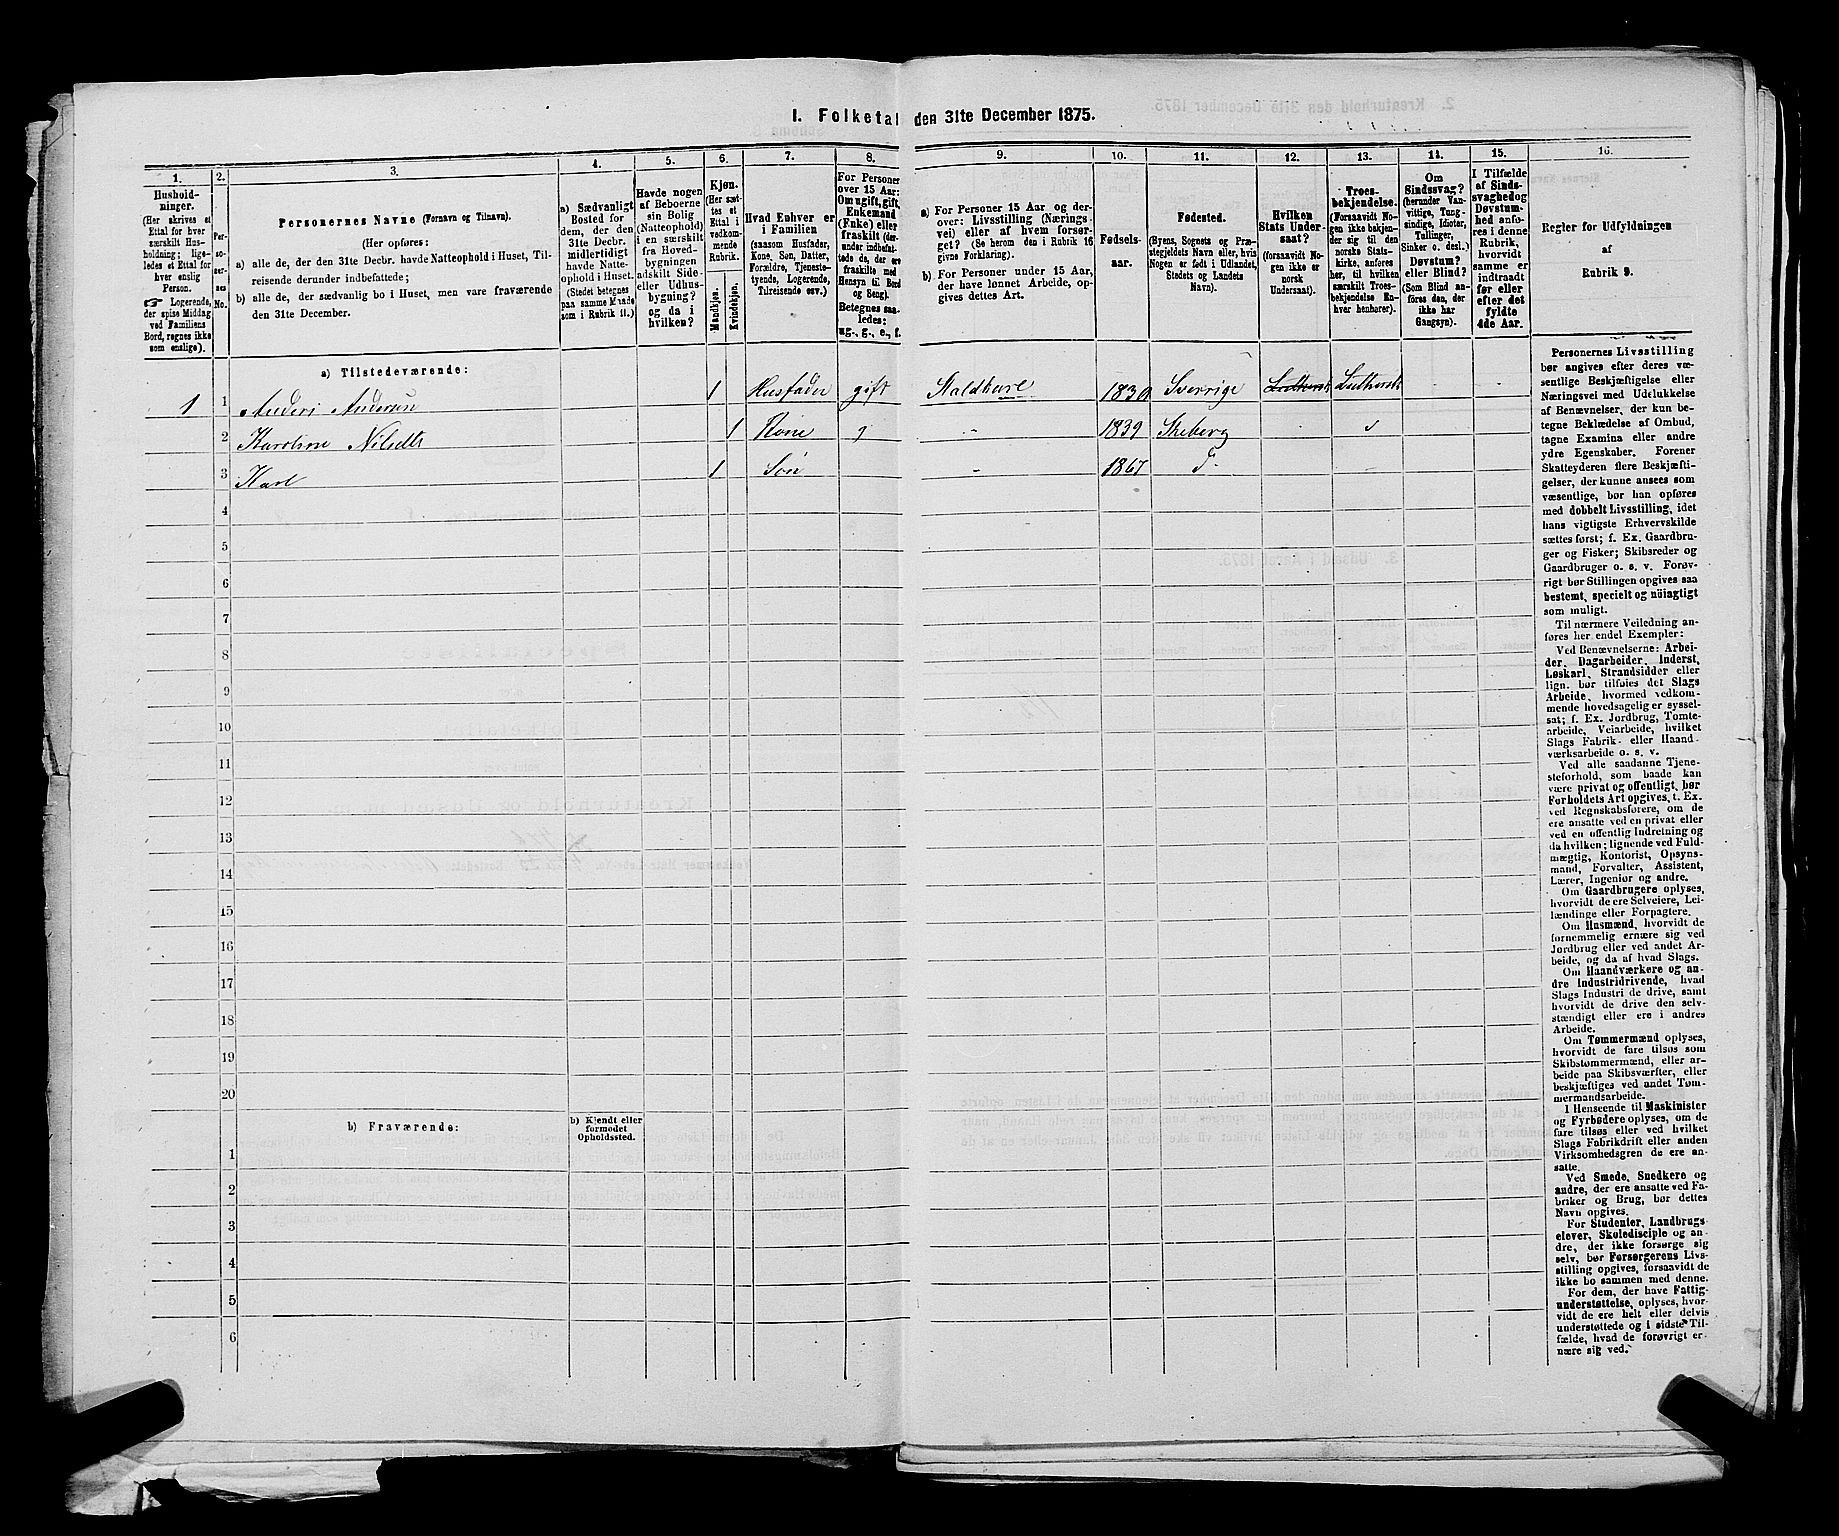 1. Folketal den 31te December 1875.
1.
Husholdninger.
(Her skrives et
Ettal for hver
særskilt Husholdning;
ligeledes et Ettal for
hver enslig
Person.
☞ Logerende,
der spise Middag
ved Familiens
Bord, regnes ikke
som enslige).
2.
Personernes
No.
3.
Personernes Navne (Fornavn og Tilnavn).
(Her opføres:
a) alle de, der den 31te Decbr. havde Natteophold i Huset, Tilreisende derunder indbefattede;
b) alle de, der sædvanlig bo i Huset, men vare fraværende
den 31te December.
4.
a) Sædvanligt
Bosted for
dem, der den
31te Decbr.
midlertidigt
havde Natteophold i Huset.
(Stedet betegnes
paa samme Maade
som i Rubrik 11.)
5.
Havde nogen
af Beboerne
sin Bolig
(Natteophold)
i en særskilt
fra Hovedbygningen
adskilt Side-
eller Udhusbygning?
og da i
hvilken?
6.
Kjøn.
(Her sættes et
Ettal i
vedkommende
Rubrik.
Mandkjøn.
Kvindekjøn.
7.
Hvad Enhver er
i Familien
(saasom Husfader,
Kone, Søn, Datter,
Forældre, Tjenestetyende, Logerende,
Tilreisende osv.)
8.
For Personer
over 15 Aar:
Om ugift, gift,
Enkemand
(Enke) eller
fraskilt (derunder indbefattede de, der ere
fraskilte med
Hensyn til Bord
og Seng).
Betegnes saaledes:
ug., g., e., f.
9.
a) For Personer 15 Aar og derover: Livsstilling (Næringsvei) eller af hvem forsørget? (Se herom den i Rubrik 16
givne Forklaring).
b) For Personer under 15 Aar,
der have lønnet Arbeide, opgives dettes Art.
10.
Fødselsaar.
11.
Fødested.
(Byens, Sognets og Præstegjeldets Navn eller, hvis
Nogen er født i Udlandet,
Stedets og Landets
Navn).
12.
Hvilken
Stats Undersaat?
(forsaavidt Nogen ikke er
norsk
Undersaat).
13.
Troesbekjendelse.
(Forsaavidt Nogen ikke bekjender sig til den
norske Statskirke, anføres
her, til hvilken
særskilt Troesbekjendelse Enhver henhører).
14.
Om
Sindssvag?
(herunder Vanvittige, Tungsindige, Idioter,
Tullinger,
Sinker o. desl.)
Døvstum?
eller Blind?
(Som Blind anføres den, der
ikke har
Gangsyn).
15.
I Tilfælde
af Sindssvaghed og
Døvstumhed anføres i denne
Rubrik,
hvorvidt
samme er
indtraadt
før eller
efter det
fyldte
4de Aar.
16.
Regler for Udfyldningen
af
Rubrik 9.
a) Tilstedeværende:
1 1 Anders Andersen 1 Husfader gift 1830 Sverrige Luthersk Luthersk
2 Karoline Nilsdtr 1 Kone g 1839 Skeberg
3 Karl 1 Søn 1867
4
5
6
7
8
9
10
11
12
13
14
15
16
17
18
19
20
b) Fraværende:
b) Kjendt eller
formodet
Opholdssted.
1
2
3
4
5
6
Personernes Livsstilling
bør angives efter deres væsentlige Beskjæftigelse eller
Næringsvei med Udelukkelse
af Benævnelser, der kun betegne Beklædelse af Ombud,
tagne Examina eller andre
ydre Egenskaber. Forener
Skatteyderen flere Beskjæftigelser, der kunne ansees som
væsentlige, bør han opføres
med dobbelt Livsstilling, idet
hans vigtigste Erhvervskilde
sættes først; f. Ex. Gaardbruger og Fisker; Skibsreder og
Gaardbruger o. s. v. Forøvrigt bør Stillingen opgives saa
bestemt, specielt og nøiagtigt
som muligt.
Til nærmere Veiledning anføres her endel Exempler:
Ved Benævnelserne: Arbeider, Dagarbeider, Inderst,
Løskarl, Strandsidder eller
lign. bør tilføies det Slags
Arbeide, hvormed vedkommende hovedsagelig er sysselsat; f. Ex. Jordbrug, Tomtearbeide, Veiarbeide, hvilket
Slags Fabrik- eller Haandværksarbeide o. s. v.
Ved alle saadanne Tjenesteforhold, som baade kan
være privat og offentligt, bør
Forholdets Art opgives, t. Ex.
ved Regnskabsførere, om de
ere ansatte ved en privat eller
ved en offentlig Indretning og
da hvilken; lignende ved Fuldmægtig, Kontorist, Opsynsmand, Forvalter, Assistent,
Lærer, Ingeniør og andre.
Om Gaardbrugere oplyses,
hvorvidt de ere Selveiere, Leilændinge eller Forpagtere.
Om Husmænd, hvorvidt de
fornemmelig ernære sig ved
Jordbrug eller ved andet Arbeide, og da af hvad Slags.
Om Haandværkere og andre Industridrivende, hvad
Slags Industri de drive, samt
hvorvidt de drive den selvstændigt eller ere i andres
Arbeide.
Om Tømmermænd oplyses,
hvorvidt de fare tilsøs som
Skibstømmermænd, eller arbeide paa Skibsværfter, eller
beskjæftiges ved andet Tømmermandsarbeide.
I Henseende til Maskinister
og Fyrbødere oplyses, om de
fare tilsøs eller ved hvilket
Slags Fabrikdrift eller anden
Virksomhedsgren de ere ansatte.
Ved Smede, Snedkere og
andre, der ere ansatte ved Fabriker og Brug, bør dettes
Navn opgives.
For Studenter, Landbrugselever, Skoledisciple og andre, der ikke forsørge sig
selv, bør Forsørgerens Livsstilling opgives, forsaavidt de
ikke bo sammen med denne.
For dem, der have Fattigunderstøttelse, oplyses, hvorvidt de ere helt eller delvis
understøttede og i sidste Tilfælde, hvad de forøvrigt ernære sig ved.